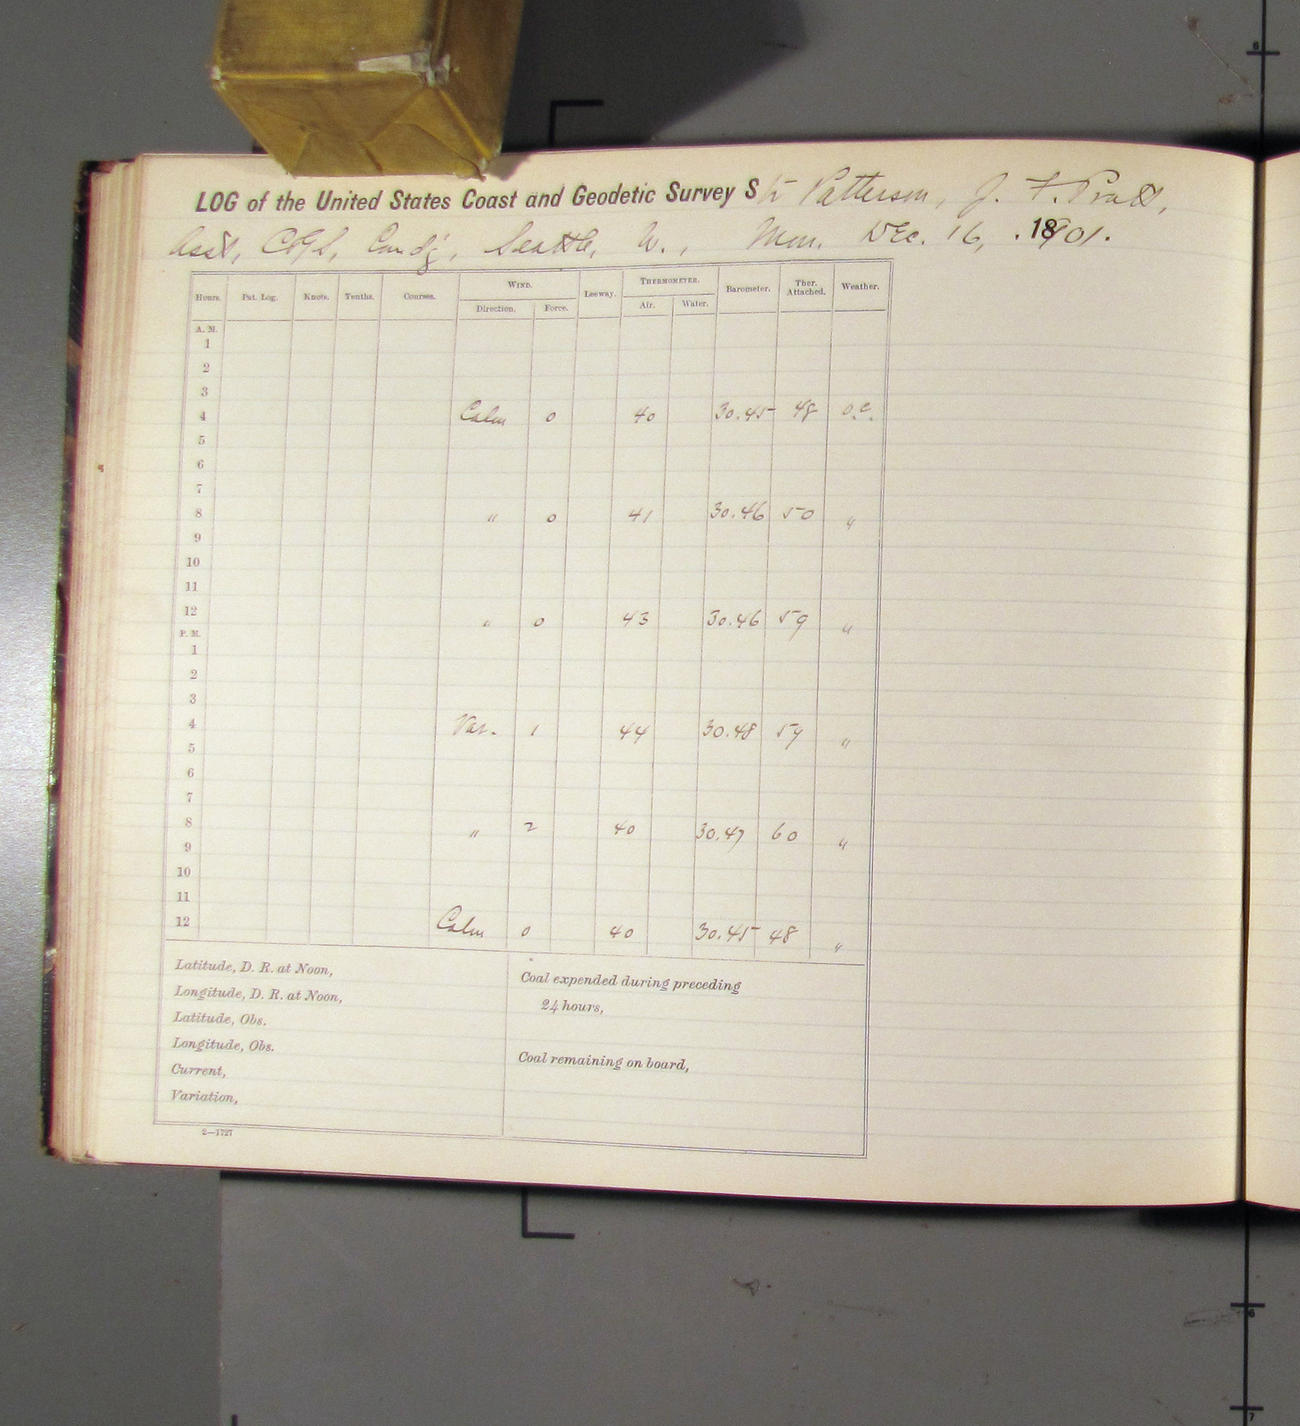 LOG of the United States Coast and Geodetic Survey Str Patterson, J. F. Pratt,
Asst, C&GS, Comd'g, Seattle, W., Mon. Dec. 16, 1901.
Hours. Pat. Log. Knots. Tenths. Courses. WIND. Leeway. THERMOMETER. Barometer. Ther. Attached. Weather.
Direction. Force. Air. Water.
A. M.
1
2
3
4 Calm 0 40 30.45 48 o.c.
5
6
7
8 " 0 41 30.46 50 "
9
10
11
12 " 0 43 30.46 59 "
P. M.
1
2
3
4 Var. 1 44 30.48 59 "
5
6
7
8 " 2 40 30.47 60 "
9
10
11
12 Calm 0 40 30.45 48 "
Latitude, D. R. at Noon,
Longitude, D. R. at Noon,
Latitude, Obs.
Longitude, Obs.
Current,
Variation,
Coal expended during preceding
24 hours,
Coal remaining on board,
2—1727
6
6
7